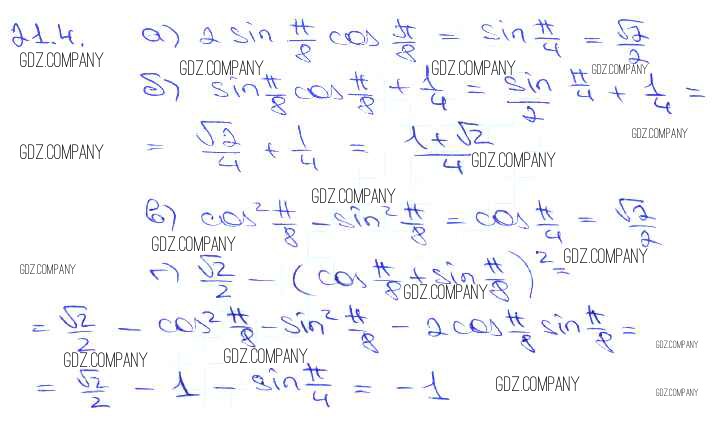 21.4. а) 2 sin π/8 cos π/8 = sin π/4 = √2/2
GDZ.COMPANY GDZ.COMPANY GDZ.COMPANY GDZ.COMPANY
б) sin π/8 cos π/8 + 1/4 = sin/2 π/4 + 1/4 =
GDZ.COMPANY
= √2/4 + 1/4 = 1+√2/4
GDZ.COMPANY GDZ.COMPANY
GDZ.COMPANY
в) cos² π/8 - sin² π/8 = cos π/4 = √2/2
GDZ.COMPANY GDZ.COMPANY
г) √2/2 - (cos π/8 + sin π/8)² =
GDZ.COMPANY GDZ.COMPANY
= √2/2 - cos² π/8 - sin² π/8 - 2 cos π/8 sin π/8 =
GDZ.COMPANY GDZ.COMPANY GDZ.COMPANY
= √2/2 - 1 - sin π/4 = -1
GDZ.COMPANY GDZ.COMPANY